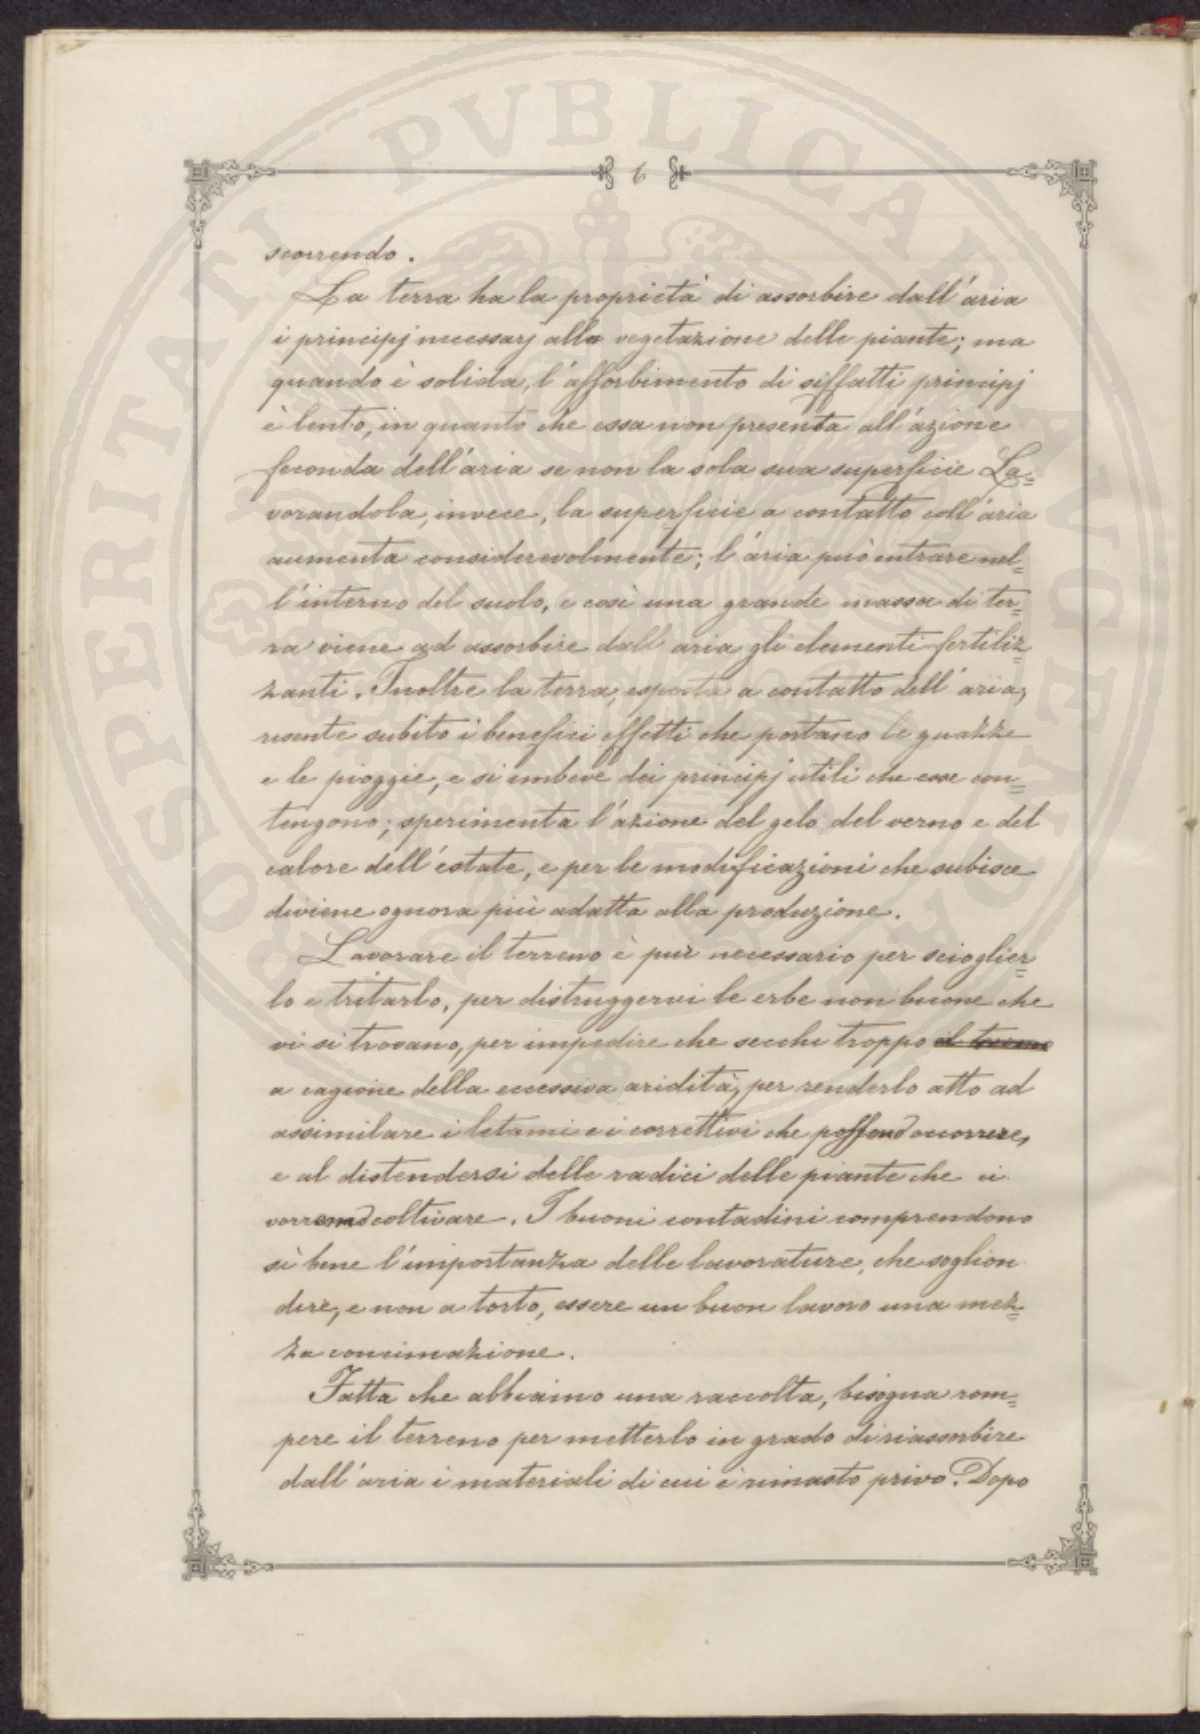 6
scorrendo.
La terra ha la proprietà di assorbire dall'aria
i principj necessarj alla vegetazione delle piante; ma
quando è solida, l'assorbimento di siffatti principj
è lento, in quanto che essa non presenta all'azione
feconda dell'aria se non la sola sua superficie La=
vorandola, invece, la superficie a contatto coll'aria
aumenta considerevolmente; l'aria può entrare nel=
l'interno del suolo, e così una grande massa di ter=
ra viene ad assorbire dall'aria gli elementi fertiliz=
zanti. Inoltre la terra, esposta a contatto dell'aria,
risente subito i benefici effetti che portano le guazze
e le pioggie, e si imbeve dei principj utili che esse con=
tengono; sperimenta l'azione del gelo del verno e del
calore dell'estate, e per le modificazioni che subisce
diviene ognora più adatta alla produzione.
Lavorare il terreno è pur necessario per scioglier=
lo e tritarlo, per distruggervi le erbe non buone che
vi si trovano, per impedire che secchi troppo il terreno
a cagione della eccessiva aridità, per renderlo atto ad
assimilare i letami e i correttivi che possono occorrere,
e al distendersi delle radici delle piante che ci
vorremo coltivare. I buoni contadini comprendono
sì bene l'importanza delle lavorature, che soglion
dire, e non a torto, essere un buon lavoro una mez=
za concimazione.
Fatta che abbiamo una raccolta, bisogna rom=
pere il terreno per metterlo in grado di riassorbire
dall'aria i materiali di cui è rimasto privo. Dopo
PROSPERITATI PVBLICAE AVGENDAE